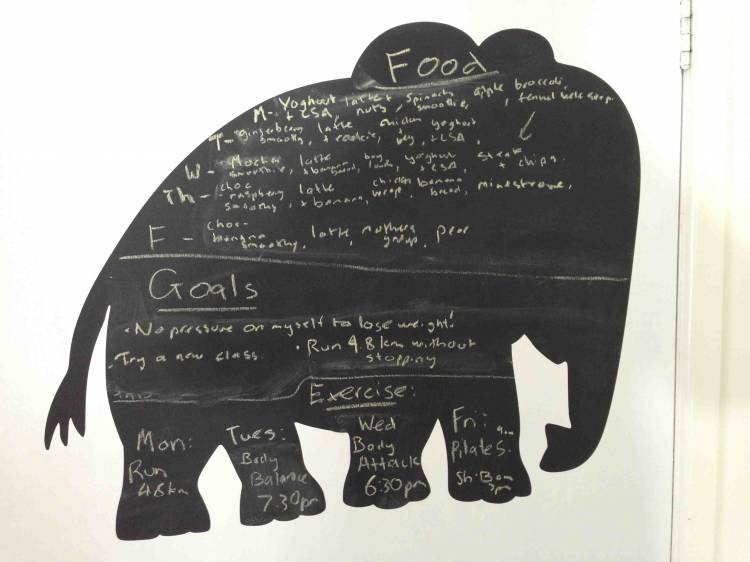 Food
M- Yoghurt latte + spinach apple broccoli,
+ LSA, nuts, smoothie, , fennel kale soup
T- gingerberry latte chicken yoghurt
smoothy, + cookie, + LSA,
W - Mocha latte yoghurt steak
smoothie, + banana bread, + LSA, + chips.
Th- choc raspberry latte chicken banana
smoothy, + banana, wrap, bread, minestrone,
F - choc-
banana latte, mothers pear
smoothy, group,
Goals
· No pressure on myself to lose weight!
· Try a new class. · Run 4.8km without
stopping
Exercise:
Mon:
Run
4.8km
Tues:
Body
Balance
7.30pm
Wed
Body
Attack
6:30pm
Fri: 9am
Pilates.
Sh'Bam